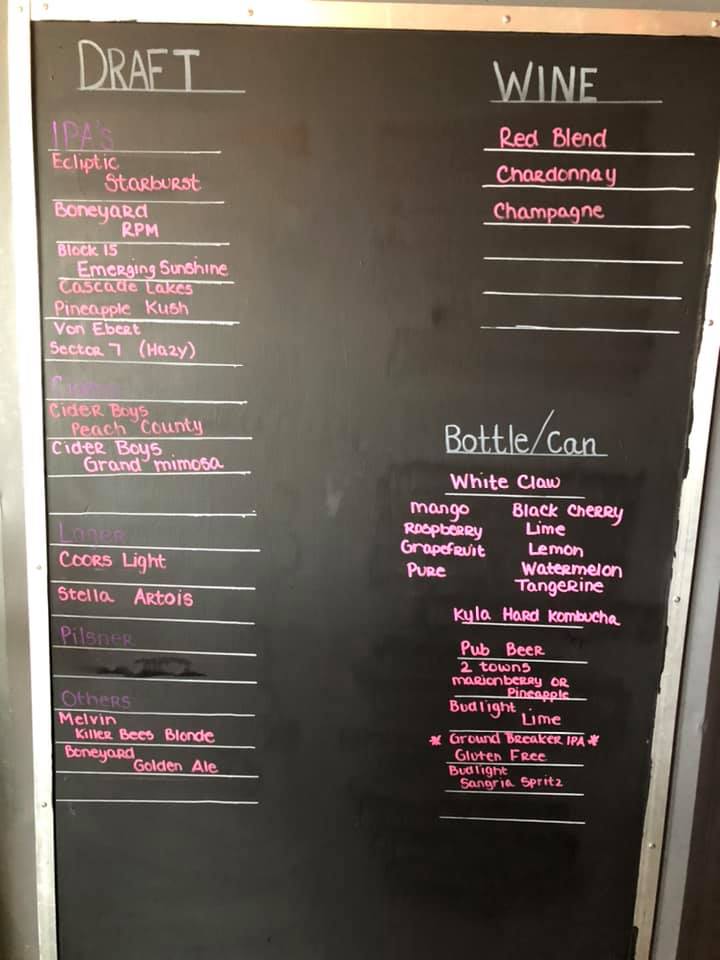 DRAFT
IPA's
Ecliptic
Starburst
Boneyard
RPM
Block 15
Emerging Sunshine
Cascade Lakes
Pineapple Kush
Von Ebert
Sector 7 (Hazy)
Cider Boys
Peach County
Cider Boys
Grand mimosa
Lager
Coors Light
Stella Artois
Pilsner
Others
Melvin
Killer Bees Blonde
Boneyard
Golden Ale
WINE
Red Blend
Chardonnay
Champagne
Bottle/Can
White Claw
mango Black Cherry
Raspberry Lime
Grapefruit Lemon
Pure Watermelon
Tangerine
Kyla Hard Kombucha
Pub Beer
2 towns
marionberry or
Pineapple
Budlight
Lime
* Ground Breaker IPA *
Gluten Free
Budlight
Sangria Spritz